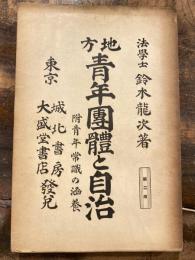 法學士 鈴木龍次著
地方
青年團體と自治
附青年常識の涵養
東京
城北書房
大盛堂書店
發兌
第二版